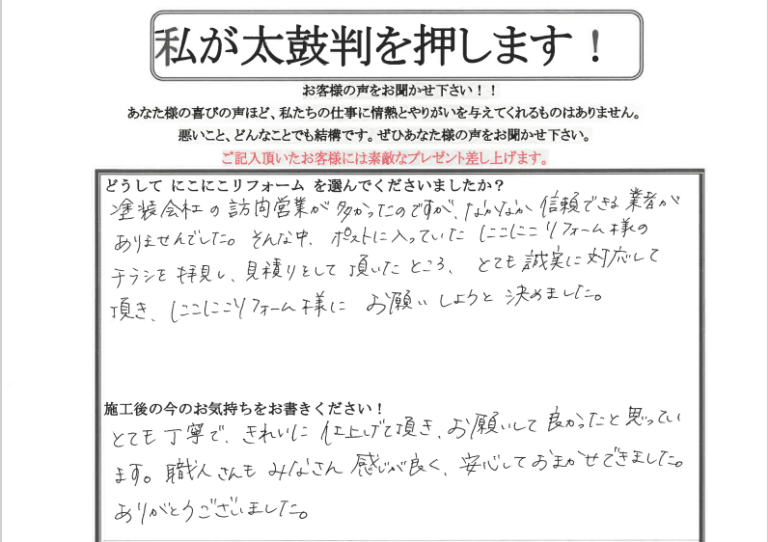 私が太鼓判を押します！
お客様の声をお聞かせ下さい！！
あなた様の喜びの声ほど、私たちの仕事に情熱とやりがいを与えてくれるものはありません。
悪いこと、どんなことでも結構です。ぜひあなた様の声をお聞かせ下さい。
ご記入頂いたお客様には素敵なプレゼント差し上げます。
どうして にこにこリフォーム を選んでくださいましたか？
塗装会社の訪問営業が多かったのですが、なかなか信頼できる業者が
ありませんでした。そんな中、ポストに入っていたにこにこリフォーム様の
チラシを拝見し、見積りをして頂いたところ、とても誠実に対応して
頂き、にこにこリフォーム様にお願いしようと決めました。
施工後の今のお気持ちをお書きください！
とても丁寧で、きれいに仕上げて頂き、お願いして良かったと思ってい
ます。職人さんもみなさん感じが良く、安心しておまかせできました。
ありがとうございました。